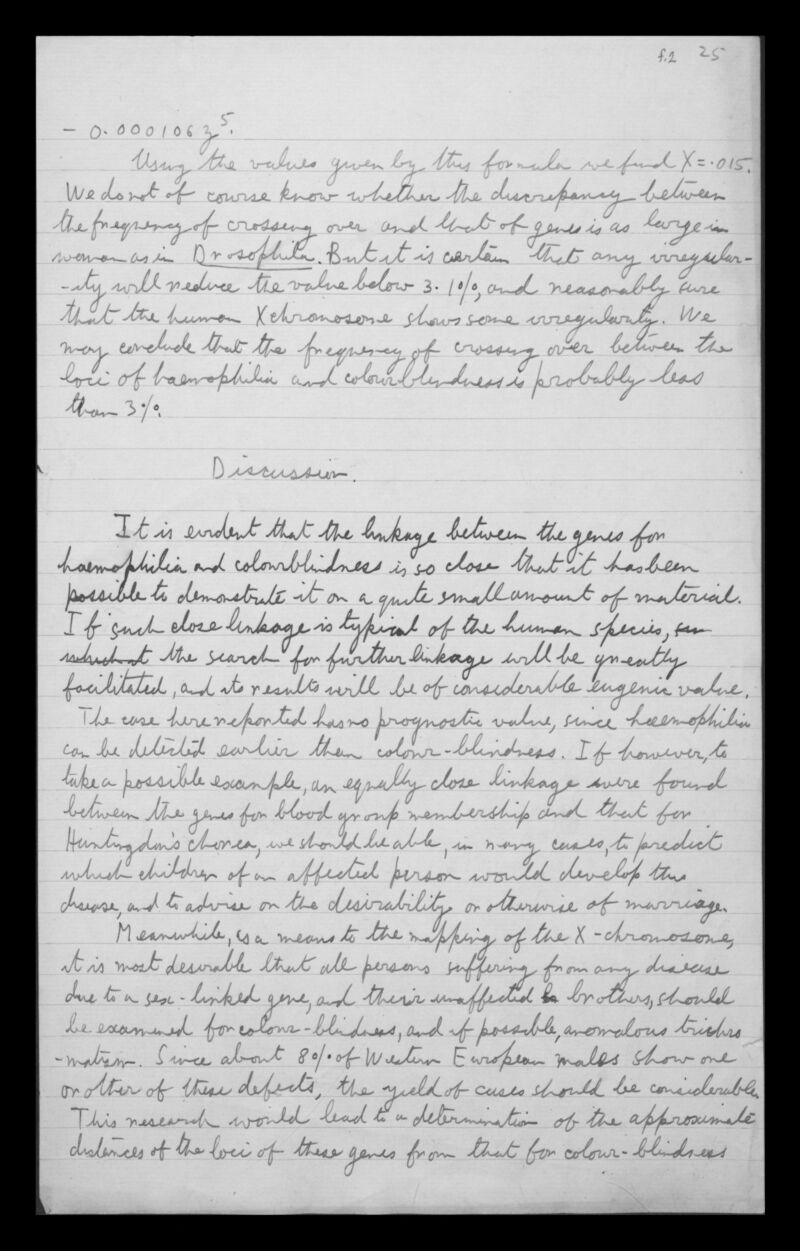 f.2 25
- 0.0001063z⁵.
Using the values given by this formula we find X=.015.
We do not of course know whether the discrepancy between
the frequency of crossing over and that of genes is as large in
woman as in Drosophila. But it is certain that any irregular-
-ity will reduce the value below 3.1%, and reasonably sure
that the human X chromosome shows some irregularity. We
may conclude that the frequency of crossing over between the
loci of haemophilia and colourblindness is probably less
than 3%.
Discussion.
It is evident that the linkage between the genes for
haemophilia and colourblindness is so close that it has been
possible to demonstrate it on a quite small amount of material.
If such close linkage is typical of the human species,
the search for further linkage will be greatly
facilitated, and its results will be of considerable eugenic value.
The case here reported has no prognostic value, since haemophilia
can be detected earlier than colour-blindness. If however, to
take a possible example, an equally close linkage were found
between the genes for blood group membership and that for
Huntingdon's chorea, we should be able, in many cases, to predict
which children of an affected person would develop this
disease, and to advise on the desirability or otherwise of marriage.
Meanwhile, as a means to the mapping of the X-chromosome,
it is most desirable that all persons suffering from any disease
due to a sex-linked gene, and their unaffected brothers, should
be examined for colour-blindness, and if possible, anomalous trichro
-matism. Since about 8% of Western European males show one
or other of these defects, the yield of cases should be considerable.
This research would lead to a determination of the approximate
distances of the loci of these genes from that for colour-blindness